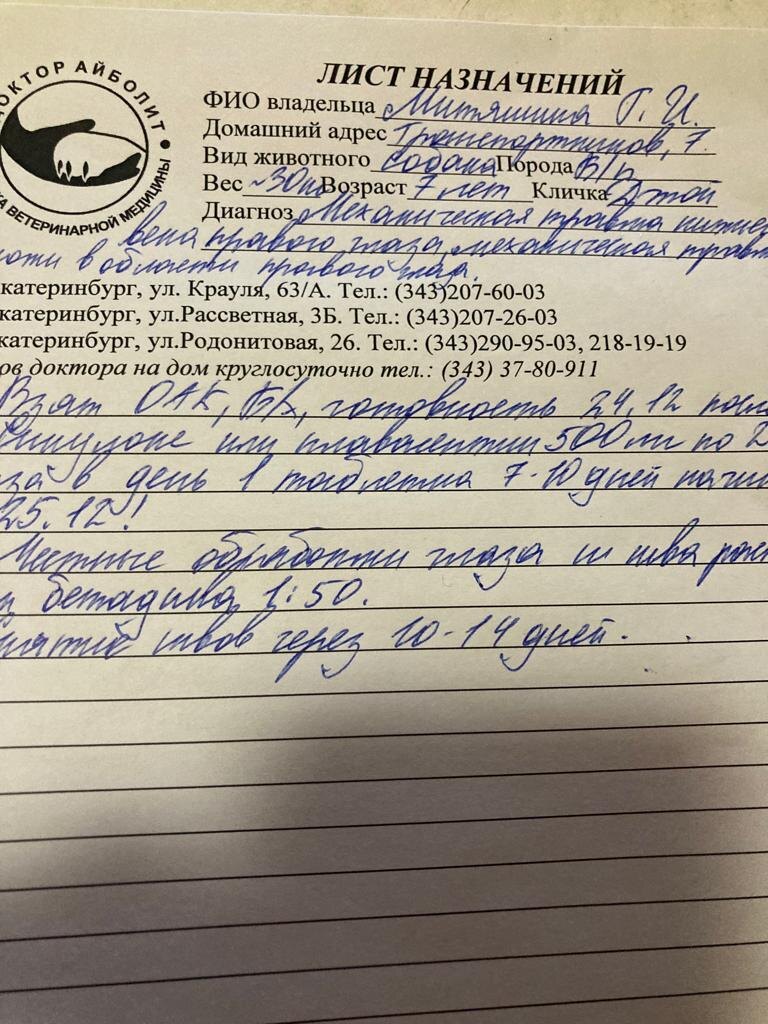 ДОКТОР АЙБОЛИТ •
КА ВЕТЕРИНАРНОЙ МЕДИЦИНЫ
ЛИСТ НАЗНАЧЕНИЙ
ФИО владельца Митяшина Г. И.
Домашний адрес Транспортников, 7.
Вид животного собака Порода В/п
Вес ~30кг Возраст 7 лет Кличка Джой
Диагноз Механическая травма нижнего
века правого глаза, механическая травма
в области правого глаза.
катеринбург, ул. Крауля, 63/А. Тел.: (343)207-60-03
катеринбург, ул.Рассветная, 3Б. Тел.: (343)207-26-03
катеринбург, ул.Родонитовая, 26. Тел.: (343)290-95-03, 218-19-19
ов доктора на дом круглосуточно тел.: (343) 37-80-911
Взят ОАК, БХ, готовность 24.12 после
Синулокс или флавоклав 500 мг по 2
раза в день 1 таблетка 7-10 дней
25.12!
Местные обработки глаза и шва
бетадина 1:50.
Снятие швов через 10-14 дней.